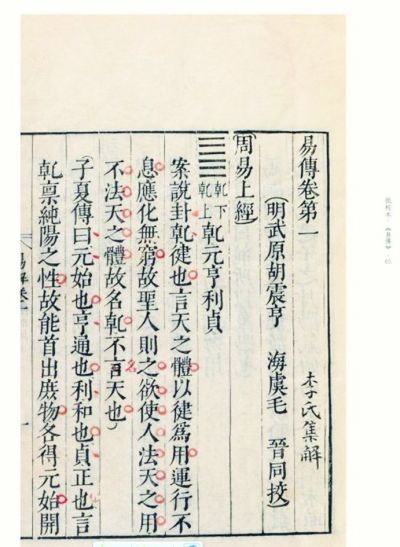 易傳卷第一
李氏集解
明武原胡震亨 海虞毛 晉同挍
周易上經
乾下
乾上 乾元亨利貞
案說卦乾徤也言天之體以徤爲用運行不
息應化無窮故聖人則之欲使人法天之用
不法天之體故名乾不言天也
子夏傳曰元始也亨通也利和也貞正也言
乾稟純陽之性故能首出庶物各得元始開
易解卷一
一